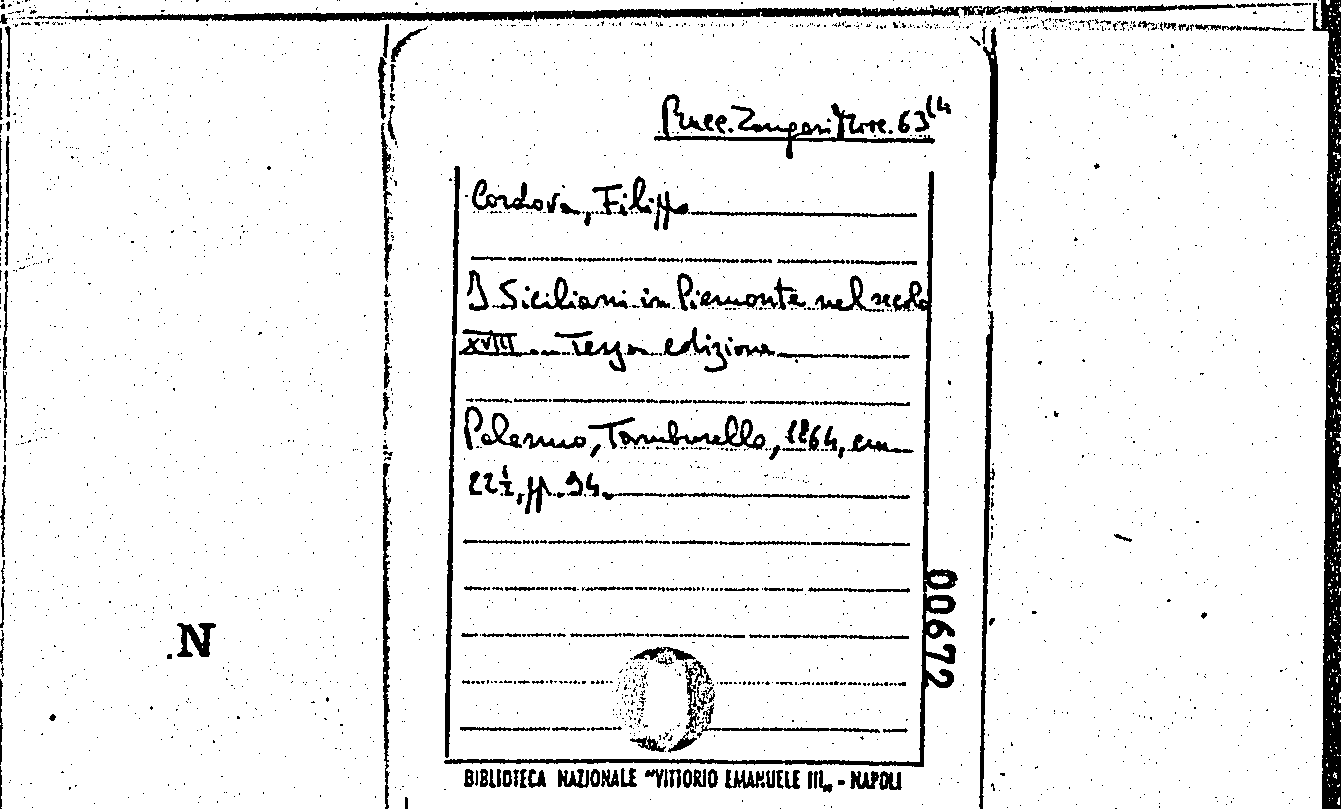 Racc. Zangari Misc. 63 (4
Cordova, Filippo
I Siciliani in Piemonte nel secolo
XVIII... Terza edizione
Palermo, Tamburello, 1864, cm
22½, pp. 94.
00672
.N
BIBLIOTECA NAZIONALE "VITTORIO EMANUELE III„ - NAPOLI